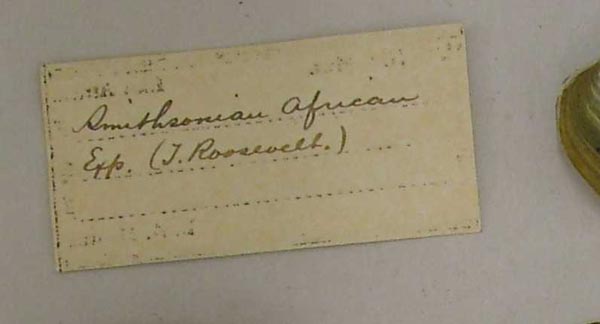 Smithsonian African
Exp. (T. Roosevelt.)